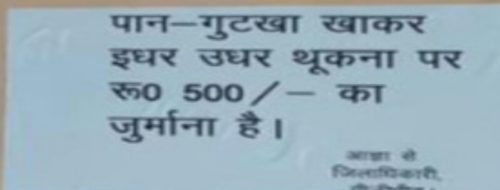 पान–गुटखा खाकर
इधर उधर थूकना पर
रू0 500/– का
जुर्माना है।
आज्ञा से
जिलाधिकारी,